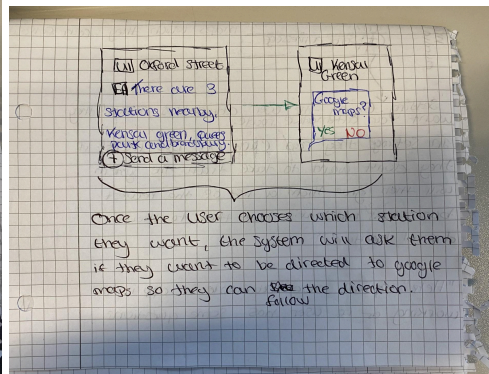 [U] Oxford Street
There are 3
stations nearby.
Kensal green, queens
park and brondesbury.
+ Send a message
[U] Kensal
Green
Google
maps?
Yes NO
Once the user chooses which station
they want, the system will ask them
if they want to be directed to google
maps so they can the direction.
follow